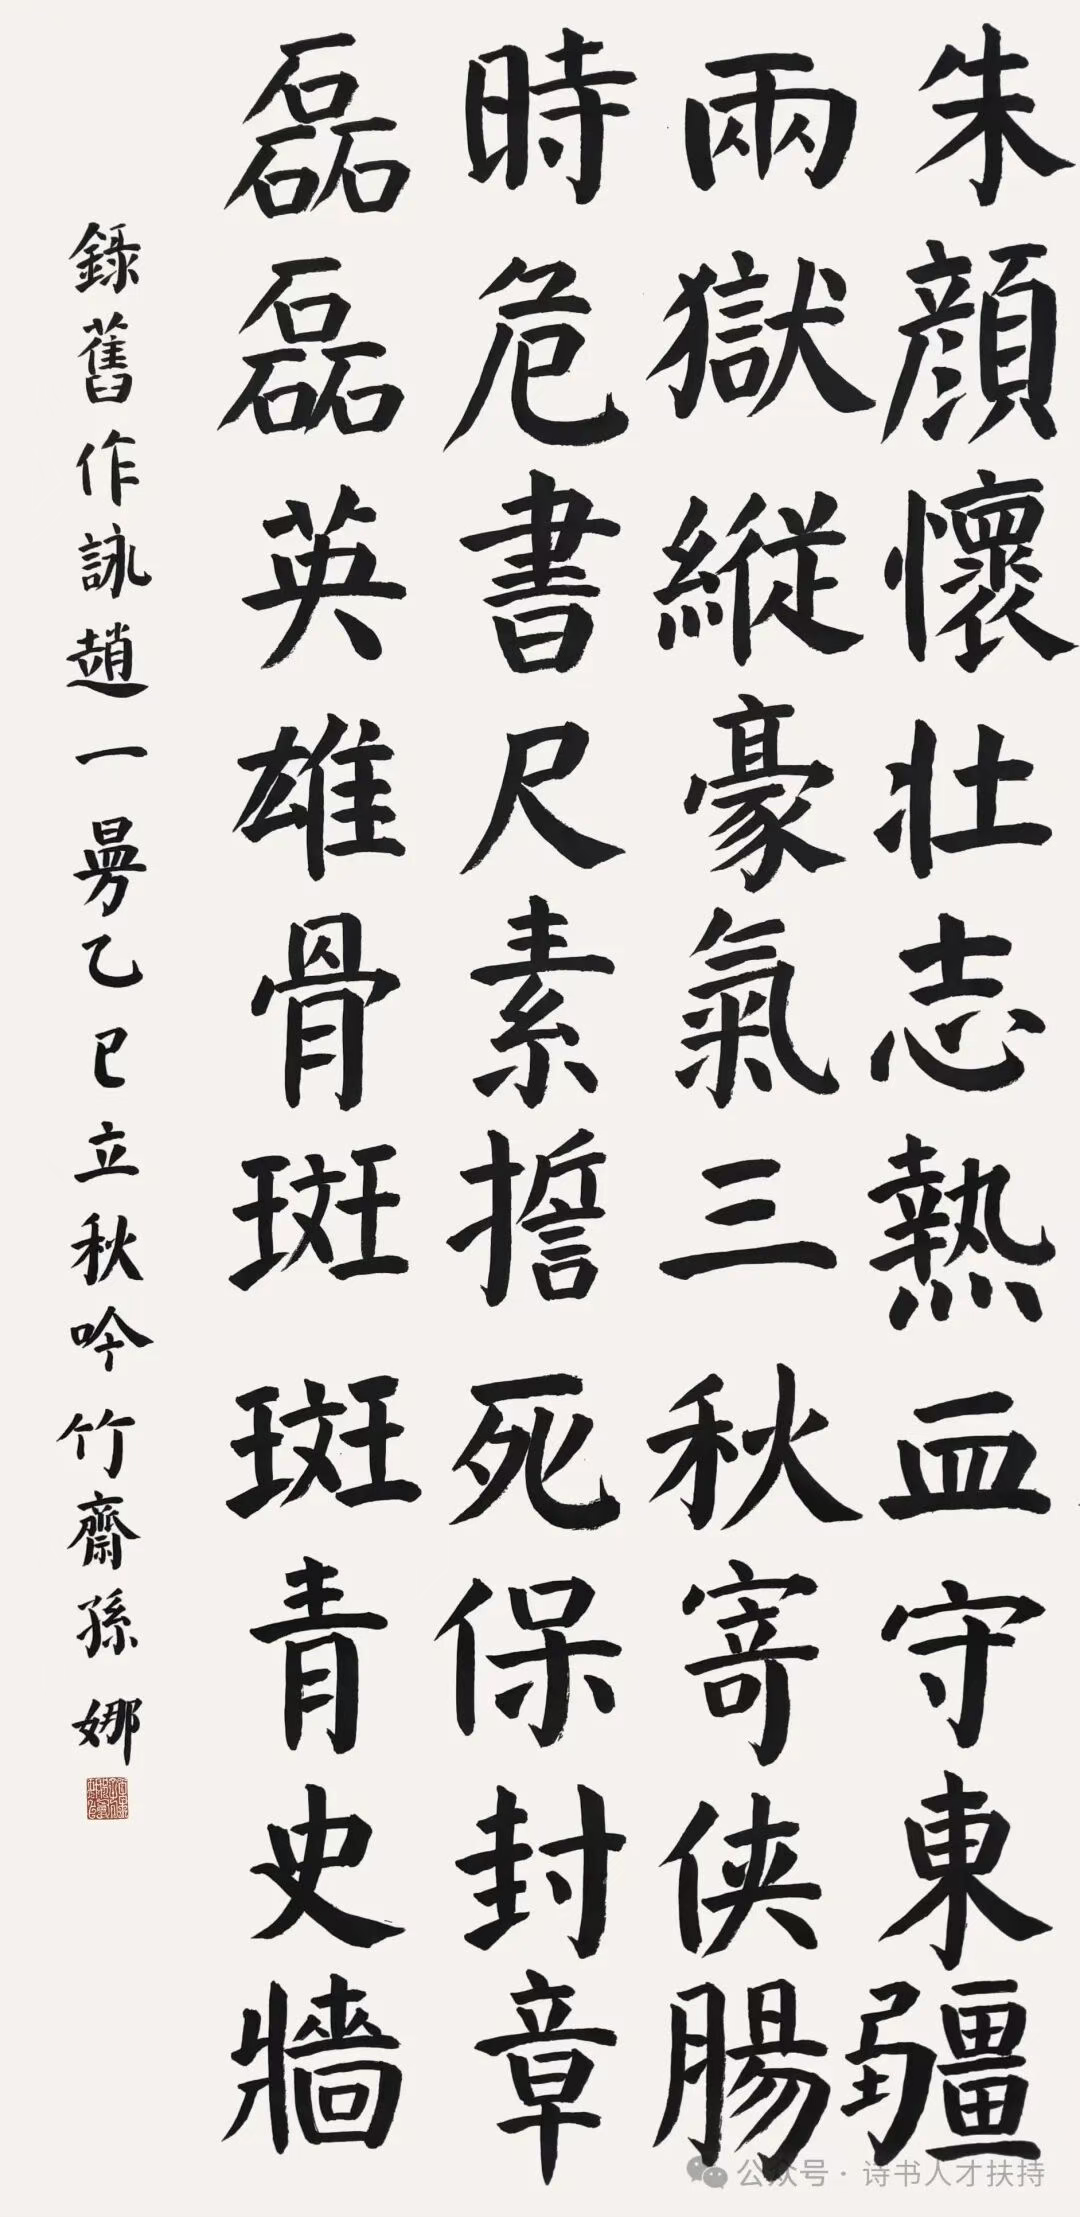 朱顔懷壮志熱血守東疆
兩獄縱豪氣三秋寄俠腸
時危書尺素擔死保封章
磊磊英雄骨斑斑青史牆
錄舊作詠趙一曼乙巳立秋吟竹齋孫娜
公众号·诗书人才扶持